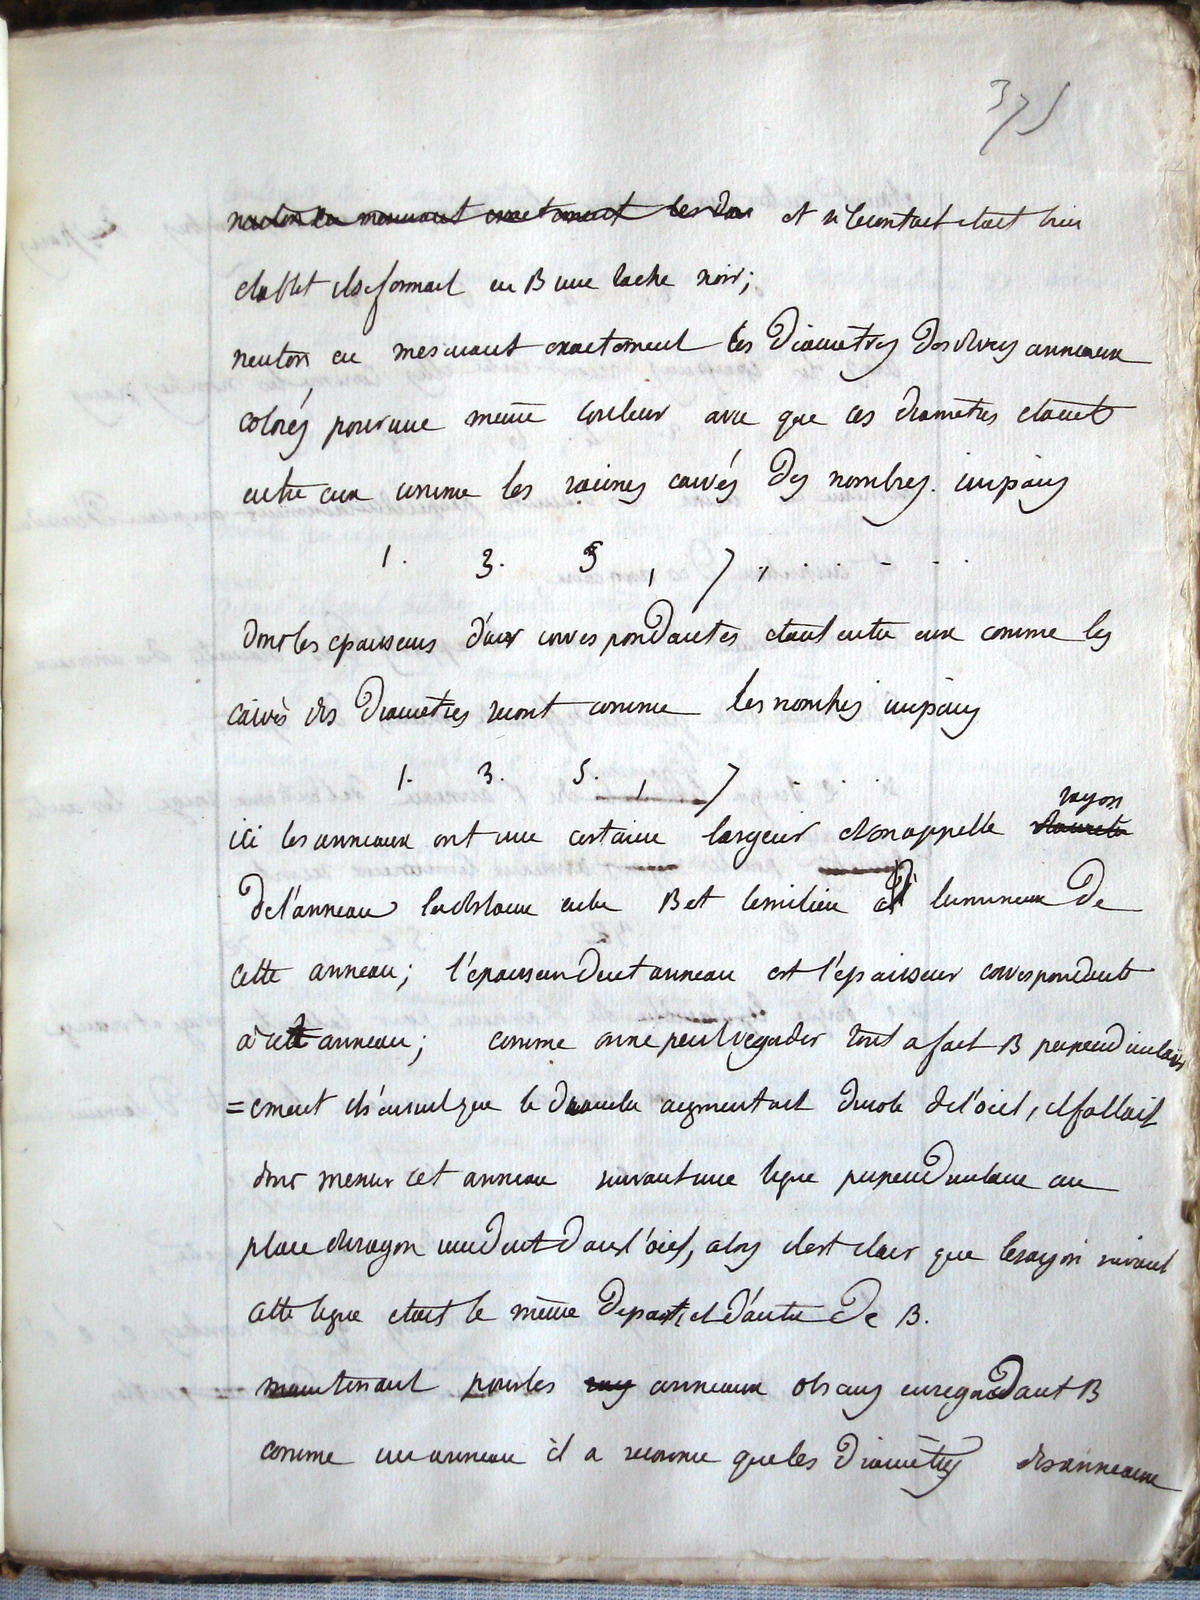 375
neuton en mesurant exactement les dia et si lecontact etait bien
etablit ilseformait en B une tache noir;
neuton en mesurant exactement les Diametres Desdivers anneaux
colorés pourune meme couleur avu que ces diametres etaient
entre eux comme les racines carrés Des nombres impairs
1. 3. 5, 7, . . - . .
Donc les epaisseurs d'air correspondantes etant entre eux comme les
carrés des Diametres seront comme les nombres impairs
1. 3. 5. , 7 - . . .
ici les anneaux ont une certaine largeur etonappelle diametre rayon
Del'anneau ladistance entre B et lemilieu lumineux De
cette anneau; l'epaisseur Decet anneau est l'epaisseur correspondante
à cet anneau; comme onne peut regarder tout a fait B perpendiculair
=ement ils'ensuit que le Diametre augmentait ducote del'oeil, ilfallait
donc mesurer cet anneau suivantune ligne perpendiculaire au
plan durayon Dans l'oeil, alors ilest clair que lerayon suivant
cette ligne etait le même Depart et D'autre De B.
maintenant pourles ray anneaux obscurs enregardant B
comme unanneau il a reconnu queles Diamètres desanneaux